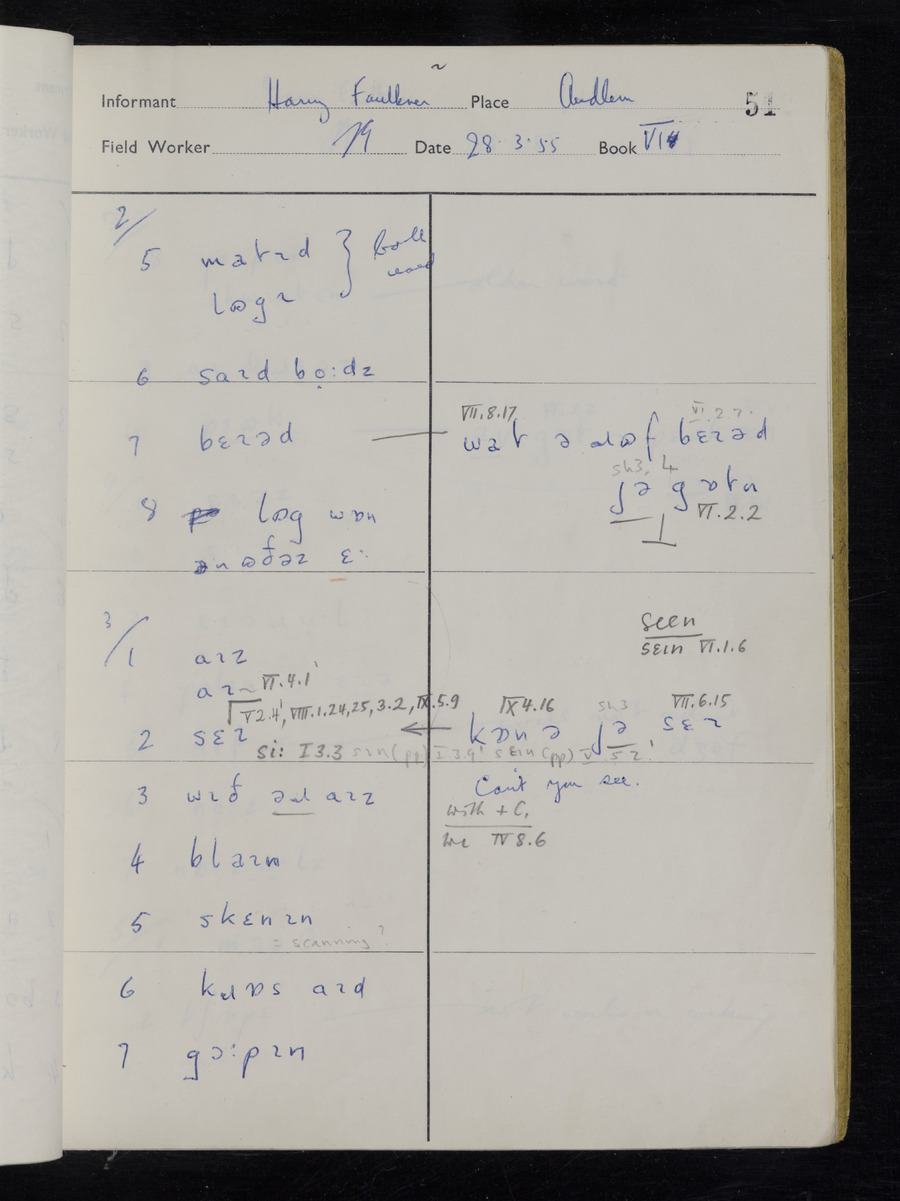 Informant Harry Faulkner Place Audlem 51
Field Worker Date 28.3.55 Book VI
2/
5 matɪd } both
lɒgɪ used
6 saɪd bọ:dz
7 bɛɪəd
VII.8.17 VI.2.7.
wat ə ɹɒf bɛɪəd
sh3, 4
ʃə gɒtn
VI.2.2
8 lɒg wɒn
ənʊðəɪ ɛ:
3/
1 aɪz
aɪ~ VI.4.1
V2.4, VIII.1.24, 25, 3.2, IX.5.9
2 sɛɪ
si: I3.3 sɪn (pp) I3.9 sɛɪn (pp) V 5 2
seen
sɛɪn VI.1.6
IX4.16 sh3 VII.6.15
kɒn ə ʃə sɛɪ
Can't you see.
3 wɪð əɹ aɪz
with + C.
wɪ IV 8.6
4 blaɪn
5 skɛnɪn
= scanning?
6 kɹɒs aɪd
7 gɔ:pɪn